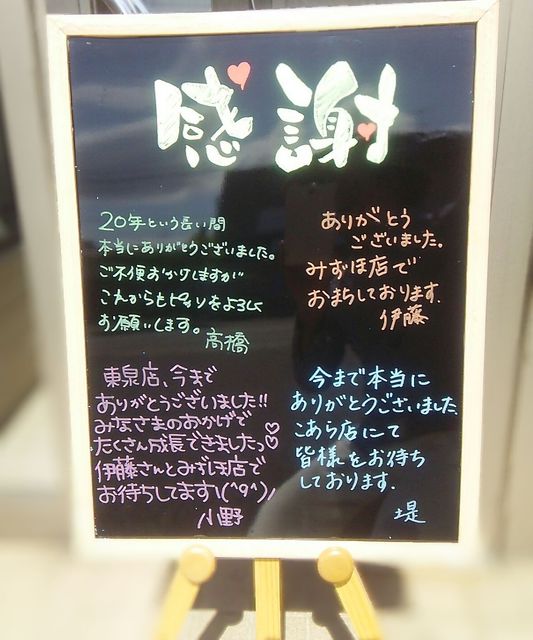 感謝
20年という長い間
本当にありがとうございました。
ご不便おかけしますが
これからもピタリをよろしく
お願いします。
高橋
ありがとう
ございました。
みずほ店で
おまちしております。
伊藤
東泉店、今まで
ありがとうございました!!
みなさまのおかげで
たくさん成長できましたっ♡♡
伊藤さんとみずほ店で
お待ちしてます\(^9^)/
小野
今まで本当に
ありがとうございました。
こあら店にて
皆様をお待ち
しております。
堤